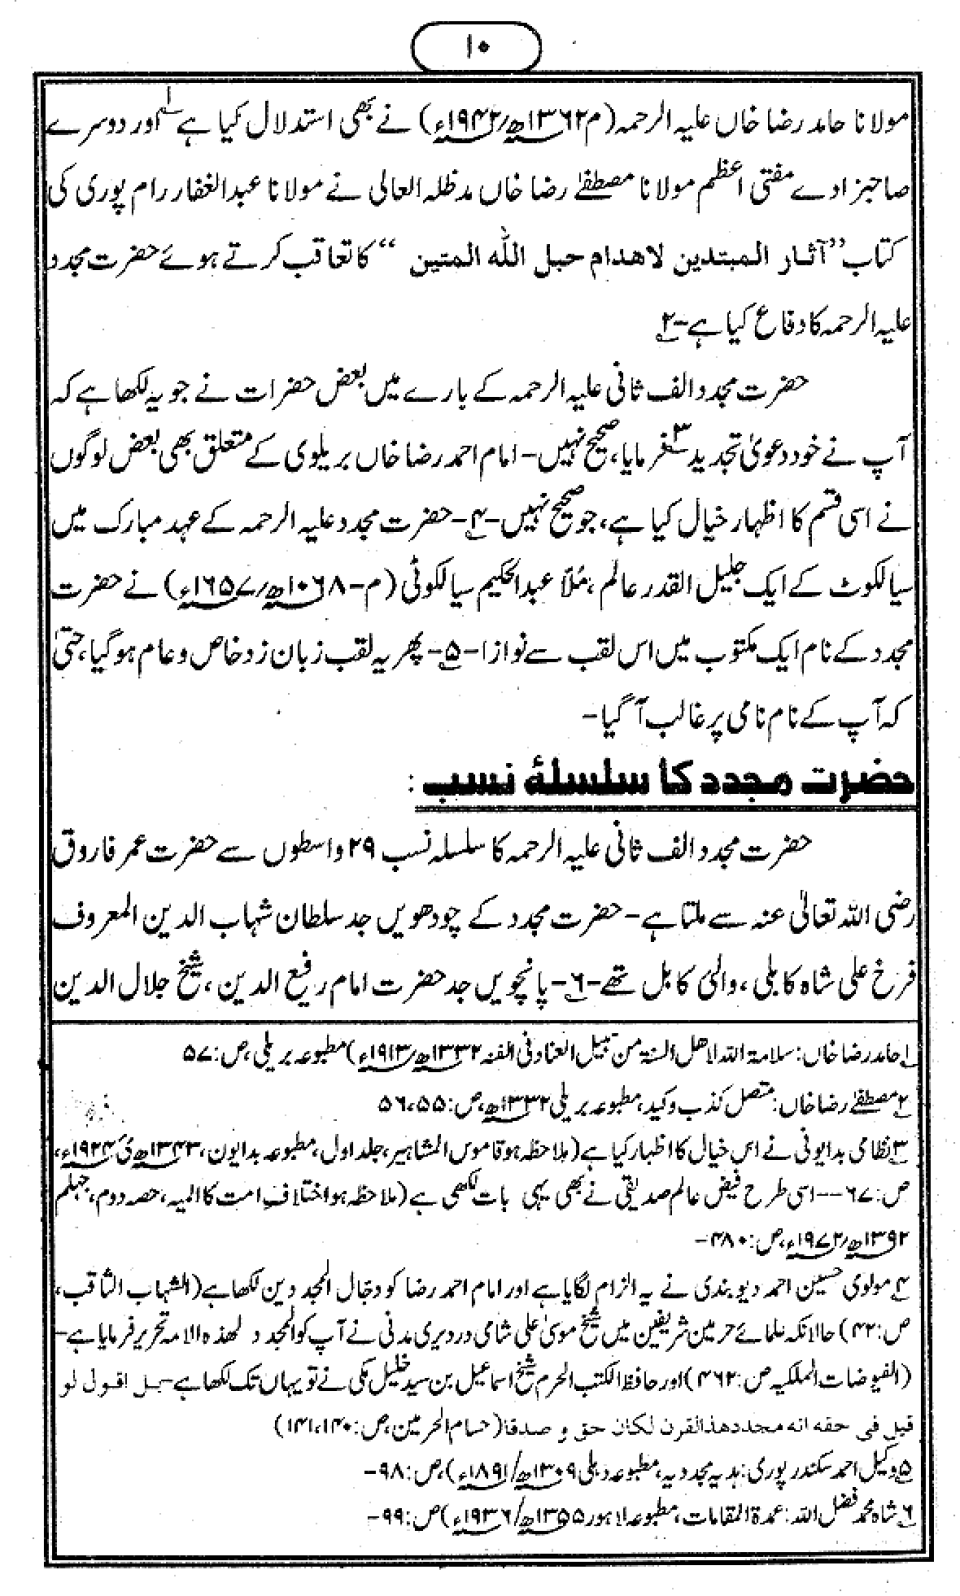 ۱۰
مولانا حامد رضا خاں علیہ الرحمہ (م ۱۳۶۲ھ/۱۹۴۲ء) نے بھی استدلال کیا ہے ۱ اور دوسرے
صاحبزادے مفتی اعظم مولانا مصطفےٰ رضا خاں مدظلہ العالی نے مولانا عبدالغفار رام پوری کی
کتاب ”آثار المبتدین لاهدام حبل الله المتین“ کا تعاقب کرتے ہوئے حضرت مجدد
علیہ الرحمہ کا دفاع کیا ہے-۲
حضرت مجدد الف ثانی علیہ الرحمہ کے بارے میں بعض حضرات نے جو یہ لکھا ہے کہ
آپ نے خود دعویٰ تجدید ۳ فرمایا، صحیح نہیں- امام احمد رضا خاں بریلوی کے متعلق بھی بعض لوگوں
نے اسی قسم کا اظہار خیال کیا ہے، جو صحیح نہیں-۴- حضرت مجدد علیہ الرحمہ کے عہد مبارک میں
سیالکوٹ کے ایک جلیل القدر عالم، مُلّا عبدالحکیم سیالکوٹی (م-۱۰۶۸ھ/۱۶۵۷ء) نے حضرت
مجدد کے نام ایک مکتوب میں اس لقب سے نوازا-۵- پھر یہ لقب زبان زد خاص و عام ہوگیا، حتیٰ
کہ آپ کے نام نامی پر غالب آ گیا-
حضرت مجدد کا سلسلۂ نسب :
حضرت مجدد الف ثانی علیہ الرحمہ کا سلسلہ نسب ۲۹ واسطوں سے حضرت عمر فاروق
رضی اللہ تعالیٰ عنہ سے ملتا ہے- حضرت مجدد کے چودھویں جد سلطان شہاب الدین المعروف
فرخ علی شاہ کابلی، والیٔ کابل تھے-۶- پانچویں جد حضرت امام رفیع الدین، شیخ جلال الدین
۱ حامد رضا خاں: سلامۃ اللہ لاھل السنۃ من سبیل العناد نی الفتنہ ۱۳۳۲ھ/۱۹۱۳ء) مطبوعہ بریلی، ص: ۵۷
۲ مصطفےٰ رضا خاں: متصل کذب وکید، مطبوعہ بریلی ۱۳۳۲ھ، ص: ۵۵، ۵۶
۳ نظامی بدایونی نے اس خیال کا اظہار کیا ہے (ملاحظہ ہو قاموس المشاہیر، جلد اول، مطبوعہ بدایون، ۱۳۴۳ھ ۱۹۲۴ء،
ص: ۶۷--- اسی طرح فیض عالم صدیقی نے بھی یہی بات لکھی ہے (ملاحظہ ہو اختلاف امت کا المیہ، حصہ دوم، جہلم
۱۳۹۲ھ/۱۹۷۲ء، ص: ۴۸۰-
۴ مولوی حسین احمد دیوبندی نے یہ الزام لگایا ہے اور امام احمد رضا کو دجال المجددین لکھا ہے (الشہاب الثاقب،
ص: ۴۲) حالانکہ علمائے حرمین شریفین میں شیخ موسیٰ علی شامی دردیری مدنی نے آپ کو المجدد لھذہ الامہ تحریر فرمایا ہے-
(الفیوضات الملکیہ ص: ۴۶۲) اور حافظ الکتب الحرم شیخ اسماعیل بن سید خلیل مکی نے تو یہاں تک لکھا ہے- بل اقول لو
قیل فی حقہ انہ مجدد ھذالقرن لکان حق و صدقا (حسام الحرمین، ص: ۱۴۰، ۱۴۱)
۵ وکیل احمد سکندر پوری: ہدیہ مجددیہ، مطبوعہ دہلی ۱۳۰۹ھ/۱۸۹۱ء)، ص: ۹۸-
۶ شاہ محمد فضل اللہ: عمدۃ المقامات، مطبوعہ لاہور ۱۳۵۵ھ/۱۹۳۶ء) ص: ۹۹-